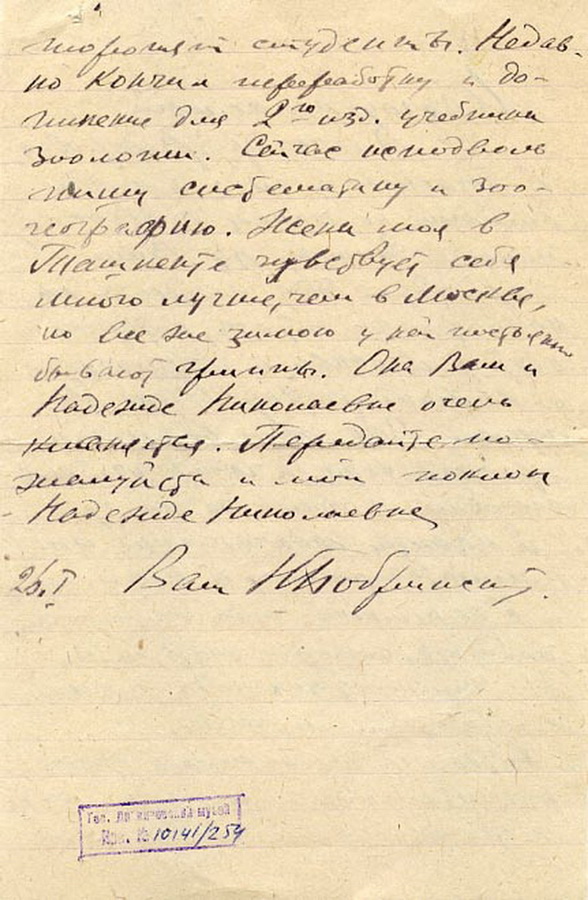 торопят студенты. Недав-
но кончил переработку и до-
полнение для 2го изд. учебника
Зоологии. Сейчас исподволь
пишу систематику и зоо-
географию. Жена моя в
Ташкенте чувствует себя
много лучше, чем в Москве,
но все же зимою у ней постоянно
бывают гриппы. Она Вам и
Надежде Николаевне очень
кланяется. Передайте по-
жалуйста и мой поклон
Надежде Николаевне
26.I Ваш Н Бобринский.
Гос. Дарвиновский музей
Инв. № 10141/254